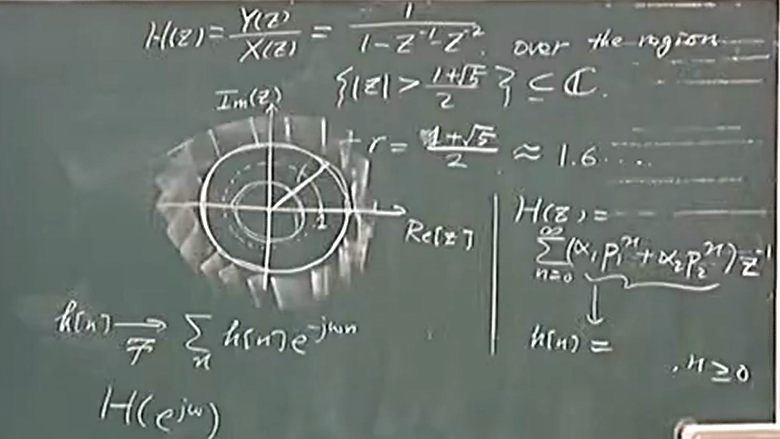 H(z) = Y(z)/X(z) = 1/(1 - z⁻¹ - z⁻²), over the region
{|z| > (1+√5)/2} ⊆ ℂ.
Im(z)
r = (1+√5)/2 ≈ 1.6....
1
Re[z]
H(z) =
∑_{n=0}^{∞} (α₁p₁ⁿ + α₂p₂ⁿ) z⁻¹
h[n] =
, n ≥ 0
h[n] →_F ∑_n h[n] e^{-jωn}
H(e^{jω})